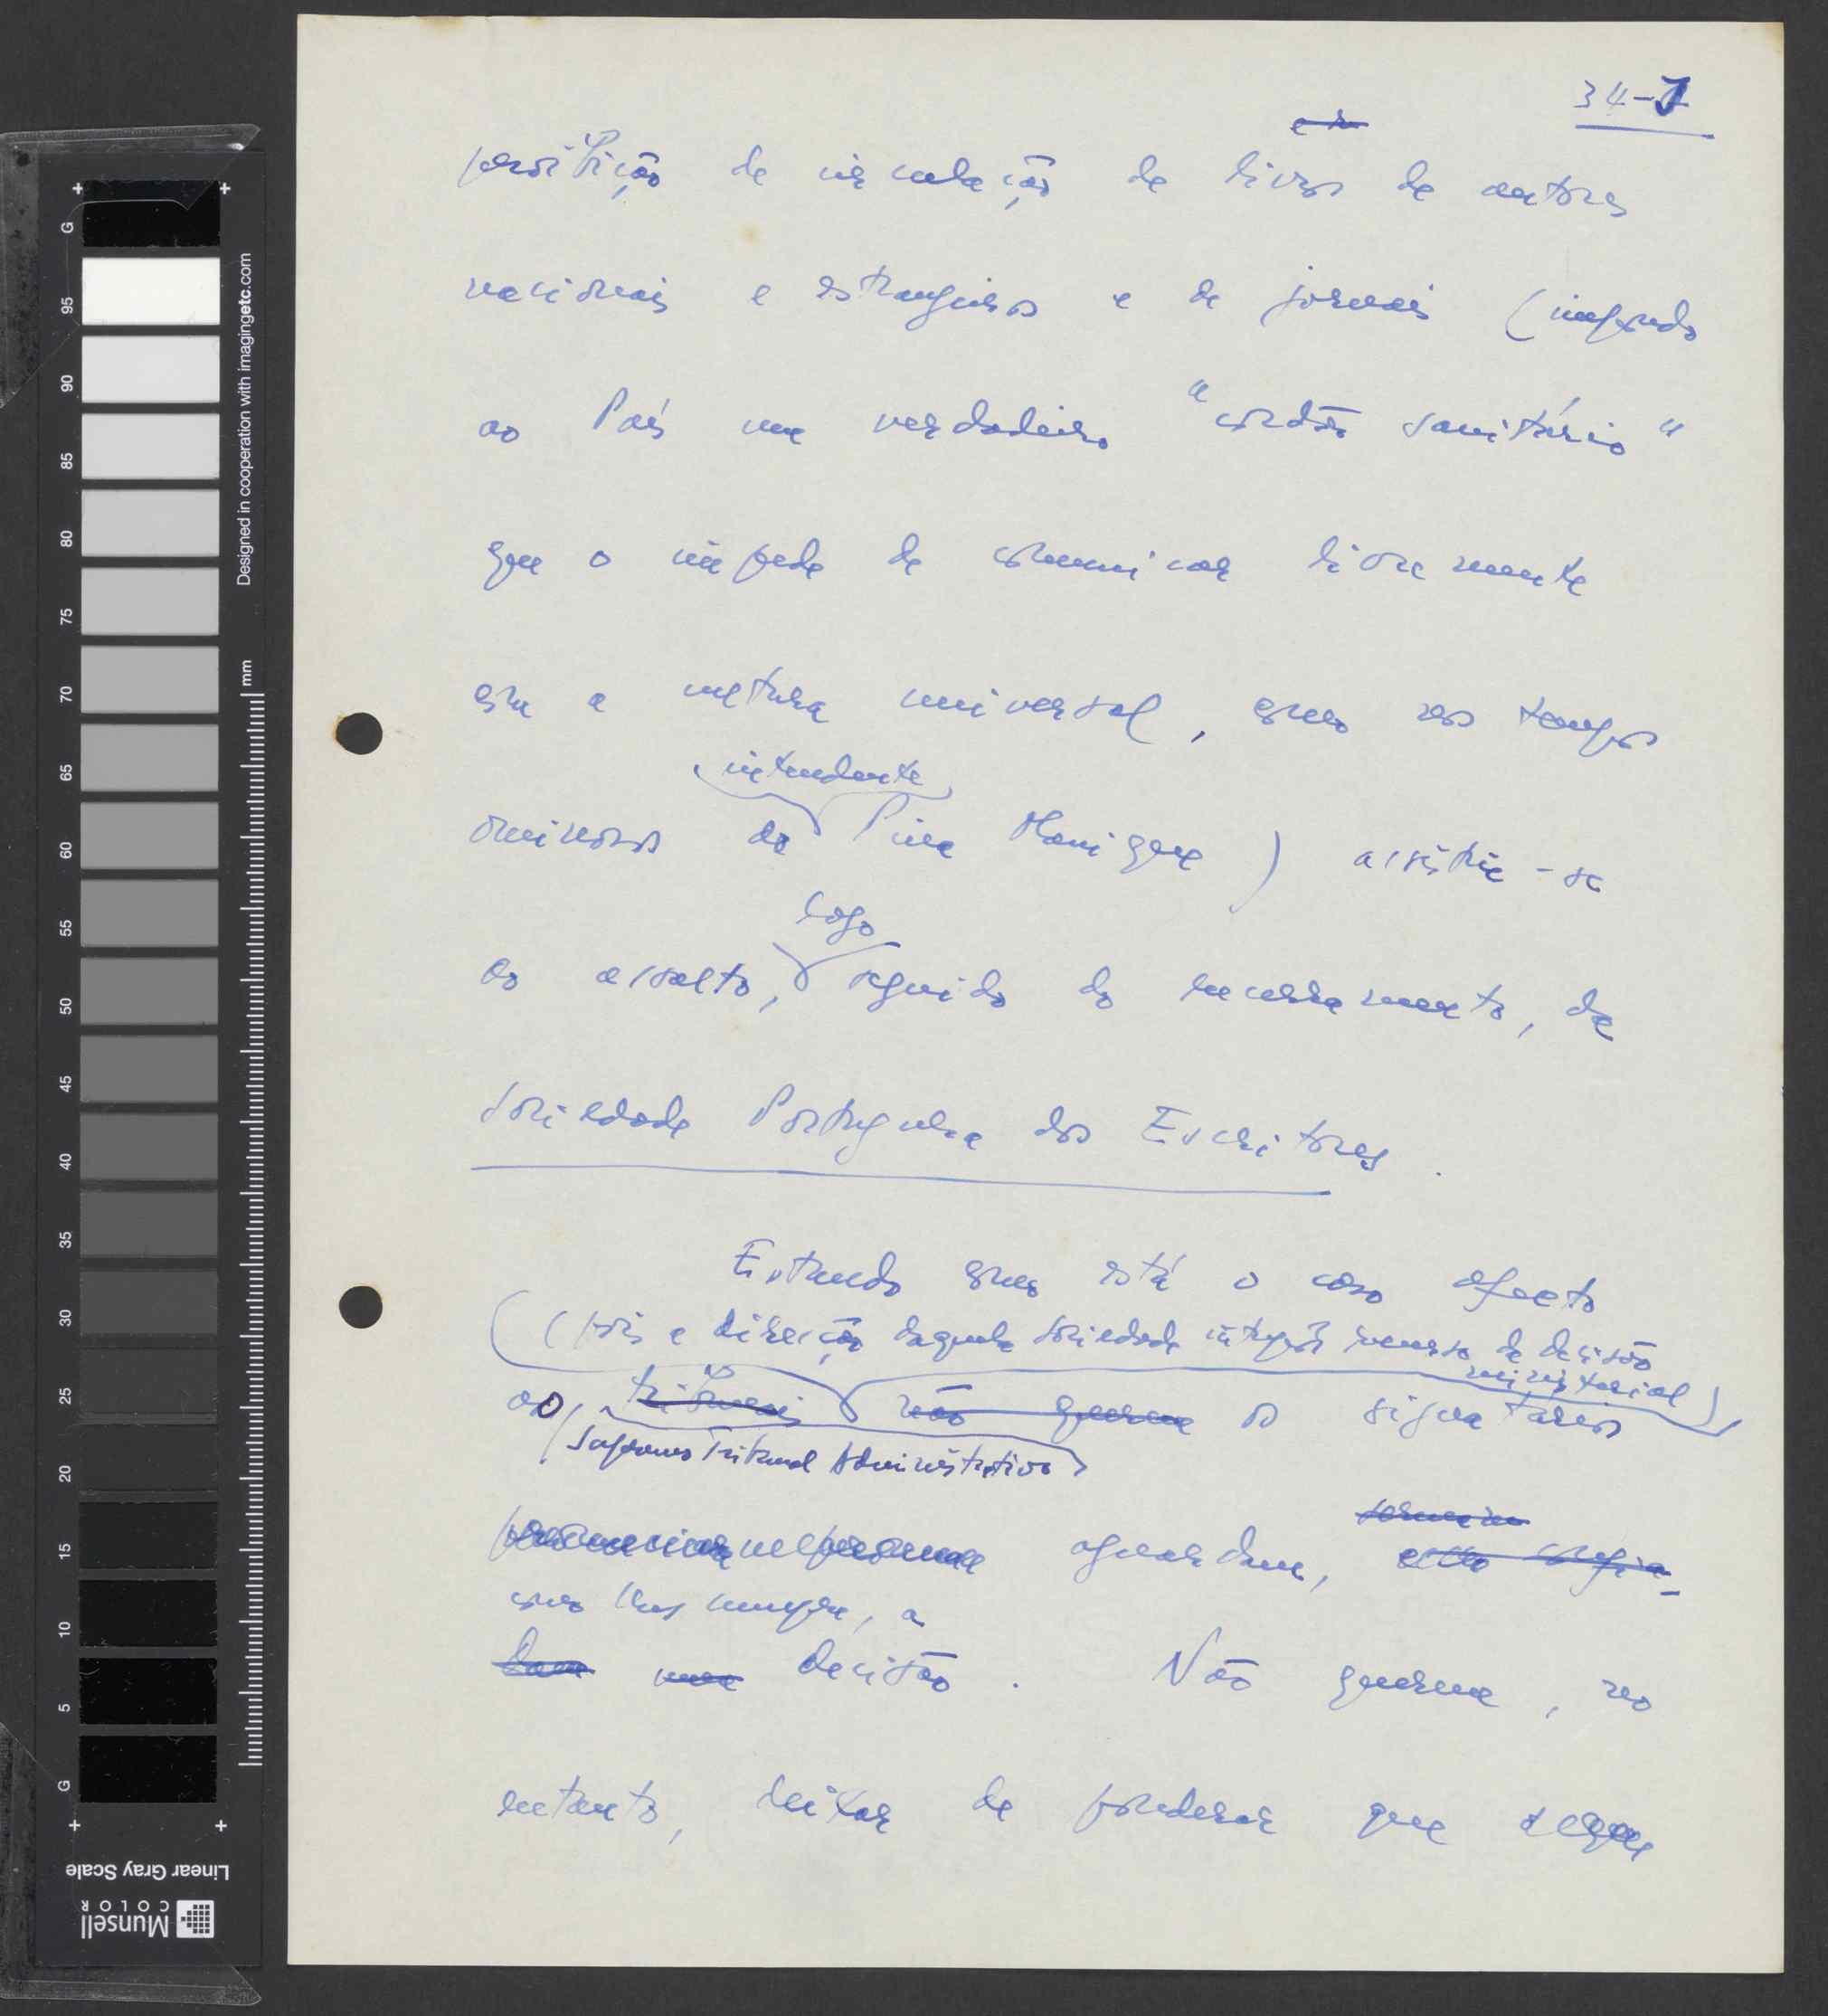 34-J
proibição de circulação de livros de autores
nacionais e estrangeiros e de jornais (impondo
ao País um verdadeiro "cordão sanitário"
que o impede de comunicar livremente
com a cultura universal, como nos tempos
intendente
ominosos do Pina Manique) assistiu-se
logo
ao assalto, seguido do encerramento, da
Sociedade Portuguesa dos Escritores.
Estando como está o caso afecto
(pois a direcção daquela Sociedade interpôs recurso da decisão
ministerial)
ao, tribunais não querem os signatários
Supremo Tribunal Administrativo
aguardam,
como lhes cumpre, a
dam uma decisão. Não querem, no
entanto, deixar de ponderar que
G 95 90 85 80 75 70 65 60 55 50 45 40 35 30 25 20 15 10 5 G
Designed in cooperation with imagingetc.com
mm
Linear Gray Scale
Munsell
COLOR